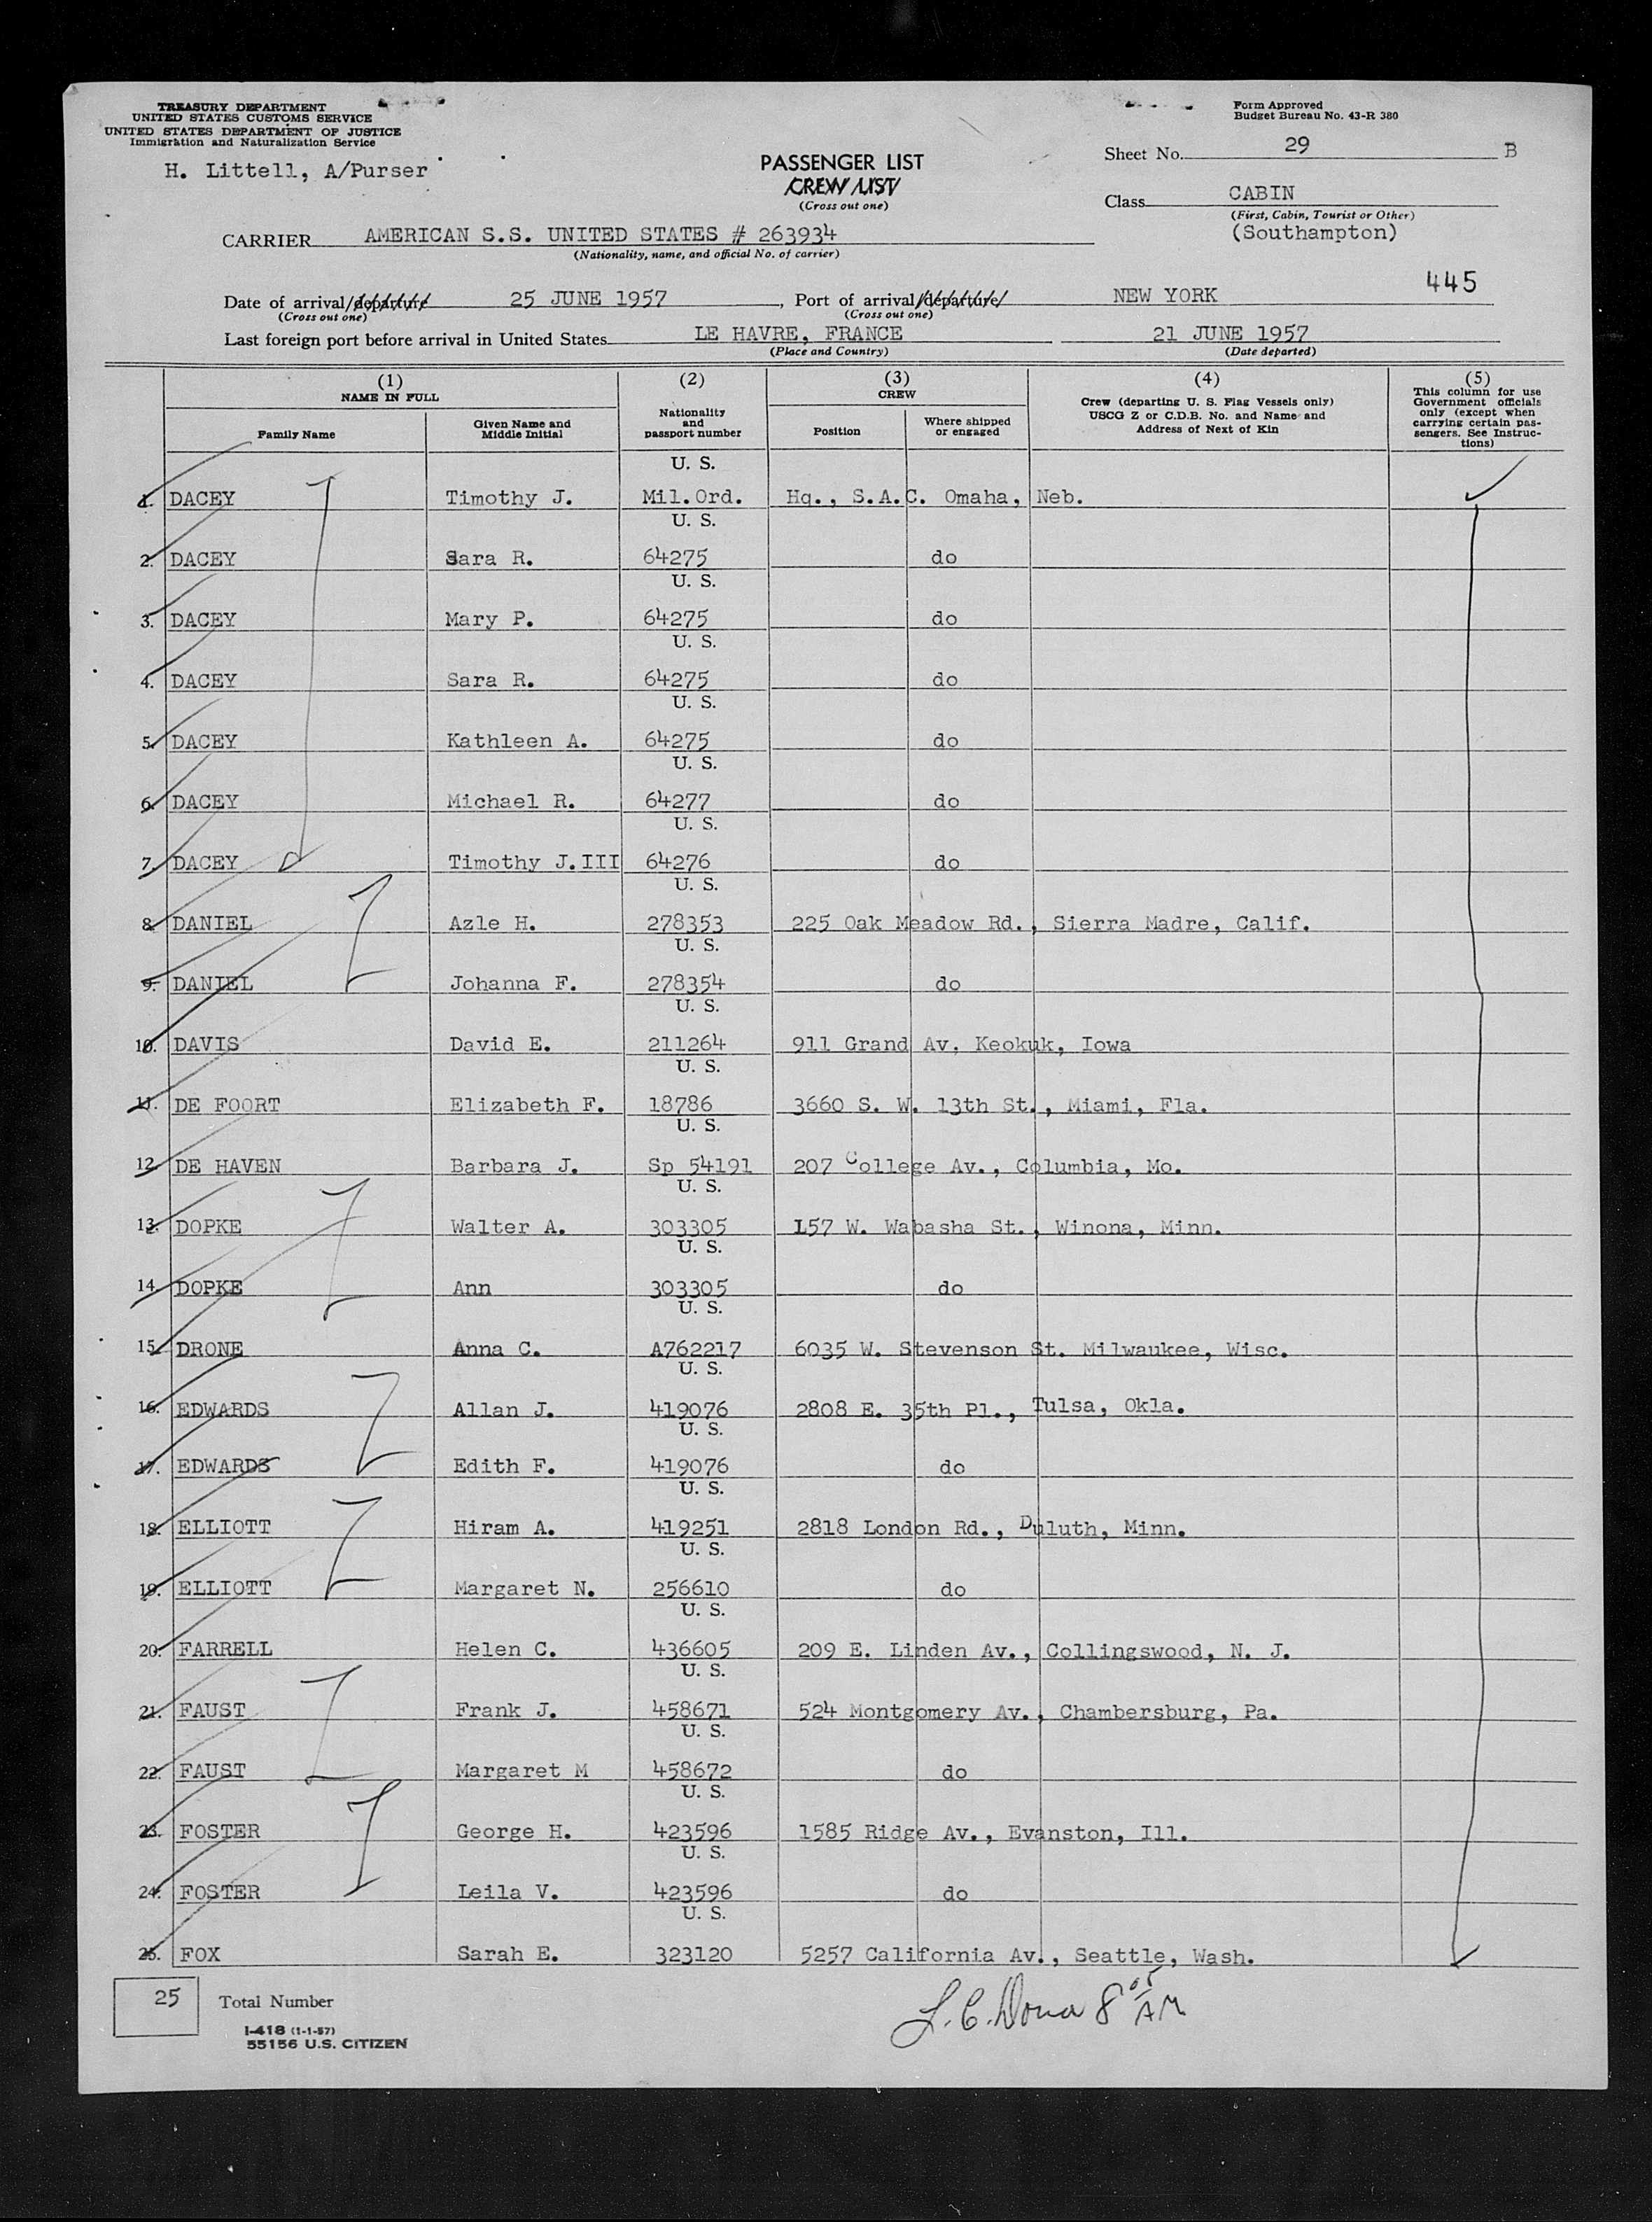 TREASURY DEPARTMENT
UNITED STATES CUSTOMS SERVICE
UNITED STATES DEPARTMENT OF JUSTICE
Immigration and Naturalization Service
H. Littell, A/Purser
Form Approved
Budget Bureau No. 43-R 380
Sheet No. 29 B
PASSENGER LIST
CREW LIST
(Cross out one)
Class CABIN
(First, Cabin, Tourist or Other)
(Southampton)
CARRIER AMERICAN S.S. UNITED STATES # 263934
(Nationality, name, and official No. of carrier)
445
Date of arrival/departure 25 JUNE 1957, Port of arrival/departure NEW YORK
(Cross out one) (Cross out one)
Last foreign port before arrival in United States LE HAVRE, FRANCE 21 JUNE 1957
(Place and Country) (Date departed)
(1) NAME IN FULL
Family Name
Given Name and Middle Initial
(2)
Nationality and passport number
(3) CREW
Position
Where shipped or engaged
(4)
Crew (departing U. S. Flag Vessels only)
USCG Z or C.D.B. No. and Name and
Address of Next of Kin
(5)
This column for use
Government officials
only (except when
carrying certain pas-
sengers. See Instruc-
tions)
U. S.
1. DACEY Timothy J. Mil.Ord. Hq., S.A.C. Omaha, Neb.
U. S.
2. DACEY Sara R. 64275 do
U. S.
3. DACEY Mary P. 64275 do
U. S.
4. DACEY Sara R. 64275 do
U. S.
5. DACEY Kathleen A. 64275 do
U. S.
6. DACEY Michael R. 64277 do
U. S.
7. DACEY Timothy J.III 64276 do
U. S.
8. DANIEL Azle H. 278353 225 Oak Meadow Rd., Sierra Madre, Calif.
U. S.
9. DANIEL Johanna F. 278354 do
U. S.
10. DAVIS David E. 211264 911 Grand Av, Keokuk, Iowa
U. S.
11. DE FOORT Elizabeth F. 18786 3660 S. W. 13th St., Miami, Fla.
U. S.
12. DE HAVEN Barbara J. Sp 54191 207 College Av., Columbia, Mo.
U. S.
13. DOPKE Walter A. 303305 157 W. Wabasha St., Winona, Minn.
U. S.
14. DOPKE Ann 303305 do
U. S.
15. DRONE Anna C. A762217 6035 W. Stevenson St. Milwaukee, Wisc.
U. S.
16. EDWARDS Allan J. 419076 2808 E. 35th Pl., Tulsa, Okla.
U. S.
17. EDWARDS Edith F. 419076 do
U. S.
18. ELLIOTT Hiram A. 419251 2818 London Rd., Duluth, Minn.
U. S.
19. ELLIOTT Margaret N. 256610 do
U. S.
20. FARRELL Helen C. 436605 209 E. Linden Av., Collingswood, N. J.
U. S.
21. FAUST Frank J. 458671 524 Montgomery Av., Chambersburg, Pa.
U. S.
22. FAUST Margaret M 458672 do
U. S.
23. FOSTER George H. 423596 1585 Ridge Av., Evanston, Ill.
U. S.
24. FOSTER Leila V. 423596 do
U. S.
25. FOX Sarah E. 323120 5257 California Av., Seattle, Wash.
25 Total Number
I-418 (1-1-57)
55156 U.S. CITIZEN
8 05 AM